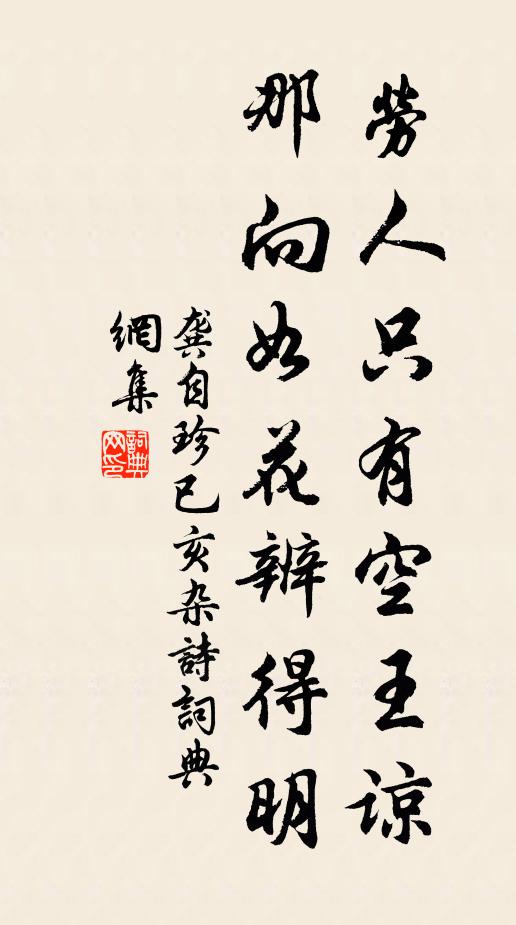 勞人只有空王諒
那向如花辨得明
龔自珍己亥杂詩詞典
網集
詞典
网印